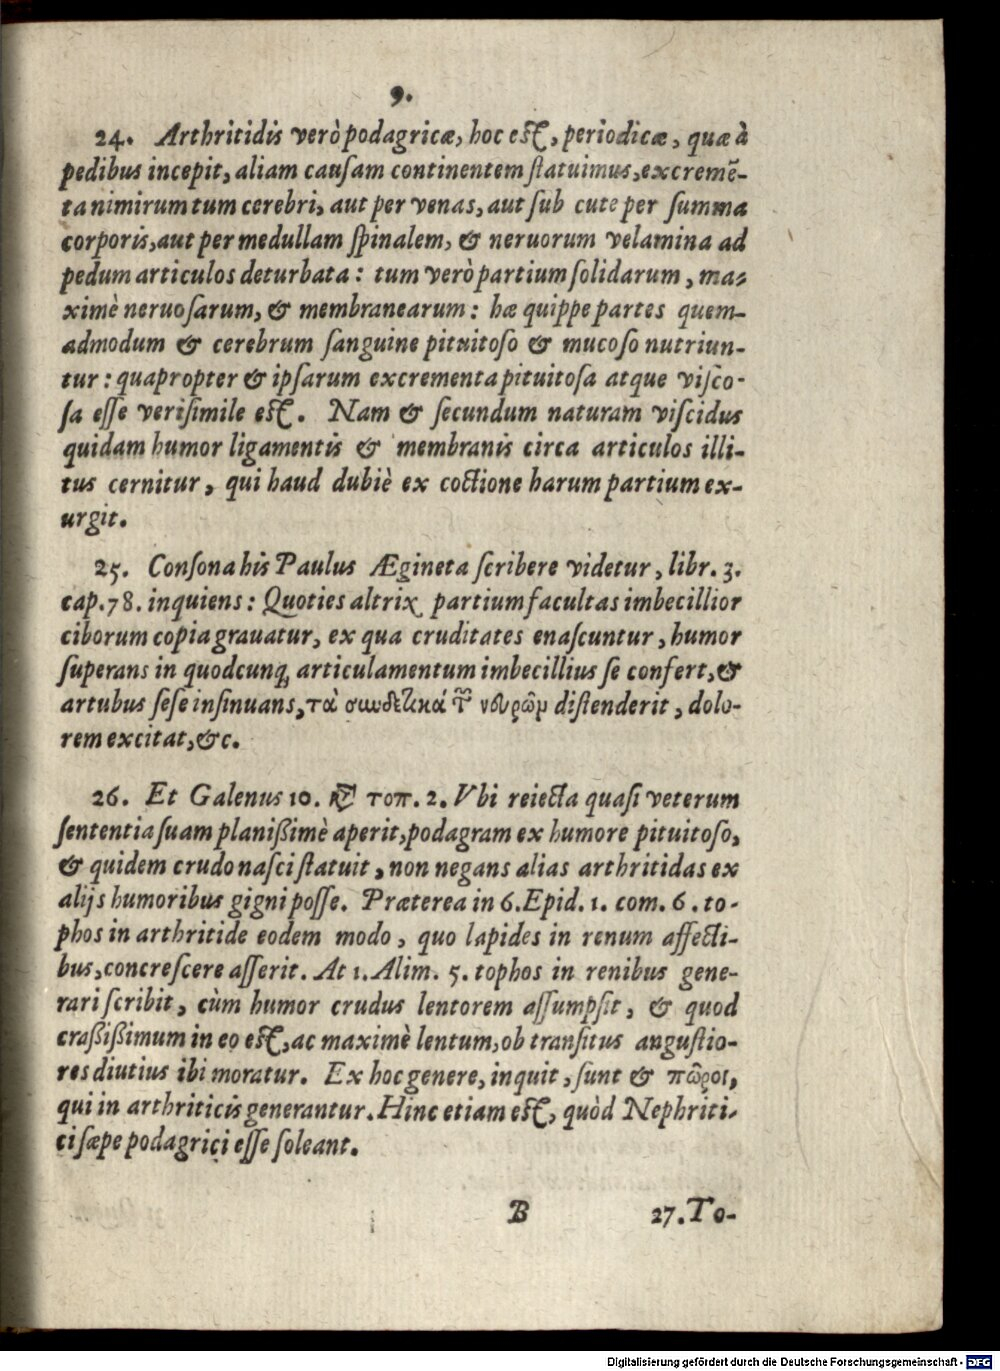 9.
24. Arthritidis verò podagricæ, hoc est, periodicæ, quæ à
pedibus incepit, aliam causam continentem statuimus, excremẽ-
ta nimirum tum cerebri, aut per venas, aut sub cute per summa
corporis, aut per medullam spinalem, & neruorum velamina ad
pedum articulos deturbata: tum verò partium solidarum, ma-
ximè neruosarum, & membranearum: hæ quippe partes quem-
admodum & cerebrum sanguine pituitoso & mucoso nutriun-
tur: quapropter & ipsarum excrementa pituitosa atque visco-
sa esse verisimile est. Nam & secundum naturam viscidus
quidam humor ligamentis & membranis circa articulos illi-
tus cernitur, qui haud dubiè ex coctione harum partium ex-
urgit.
25. Consona his Paulus Ægineta scribere videtur, libr. 3.
cap. 78. inquiens: Quoties altrix partium facultas imbecillior
ciborum copia grauatur, ex qua cruditates enascuntur, humor
superans in quodcunq; articulamentum imbecillius se confert, &
artubus sese insinuans, τὰ συνδετικά τῶν νεύρων distenderit, dolo-
rem excitat, &c.
26. Et Galenus 10. κτ τοπ. 2. Vbi reiecta quasi veterum
sententia suam planißimè aperit, podagram ex humore pituitoso,
& quidem crudo nasci statuit, non negans alias arthritidas ex
alijs humoribus gigni posse. Præterea in 6. Epid. 1. com. 6. to-
phos in arthritide eodem modo, quo lapides in renum affecti-
bus, concrescere asserit. At 1. Alim. 5. tophos in renibus gene-
rari scribit, cùm humor crudus lentorem assumpsit, & quod
craßißimum in eo est, ac maximè lentum, ob transitus angustio-
res diutius ibi moratur. Ex hoc genere, inquit, sunt & πῶροι,
qui in arthriticis generantur. Hinc etiam est, quòd Nephriti-
ci sæpe podagrici esse soleant.
B 27. To-
Digitalisierung gefördert durch die Deutsche Forschungsgemeinschaft - DFG